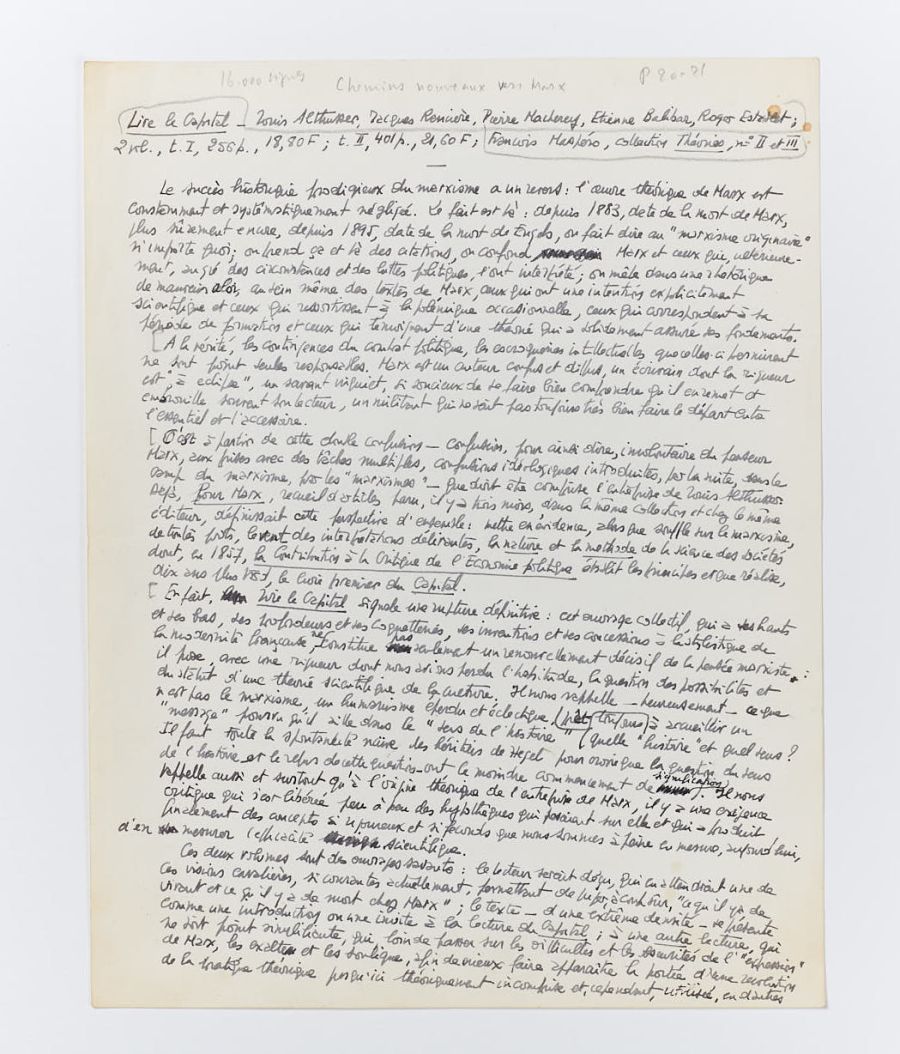 16.000 signes
Chemins nouveaux vers Marx
P 20-21
Lire le Capital _ Louis Althusser, Jacques Rancière, Pierre Macherey, Etienne Balibar, Roger Establet;
2 vol., t. I, 256 p., 18,80 F; t. II, 401 p., 21,60 F; François Maspéro, collection Théorie, n° II et III
Le succès historique prodigieux du marxisme a un revers : l'œuvre théorique de Marx est
constamment et systématiquement négligée. Le fait est là : depuis 1883, date de la mort de Marx,
plus sûrement encore, depuis 1895, date de la mort de Engels, on fait dire au "marxisme originaire"
n'importe quoi; on prend çà et là des citations, on confond Marx et ceux qui, ultérieure-
ment, au gré des circonstances et des luttes politiques, l'ont interprété; on mêle dans une rhétorique
de mauvais aloi, au sein même des textes de Marx, ceux qui ont une intention explicitement
scientifique et ceux qui ressortissent à la polémique occasionnelle, ceux qui correspondent à sa
période de formation et ceux qui témoignent d'une théorie qui a solidement assuré ses fondements.
[ A la vérité, les contingences du combat politique, les escroqueries intellectuelles que celles-ci permirent
ne sont point seules responsables. Marx est un auteur confus et diffus, un écrivain dont la rigueur
est "à éclipse", un savant inquiet, si soucieux de se faire bien comprendre qu'il et
embrouille souvent son lecteur, un militant qui ne sait pas toujours très bien faire le départ entre
l'essentiel et l'accessoire.
[ C'est à partir de cette double confusion — confusion, pour ainsi dire, involontaire du penseur
Marx, aux prises avec des tâches multiples, confusions idéologiques introduites, par la suite, dans le
camp du marxisme, par les "marxismes" — que doit être comprise l'entreprise de Louis Althusser.
Déjà, Pour Marx, recueil d'articles paru, il y a trois mois, dans la même collection et chez le même
éditeur, définissait cette perspective d'ensemble : mettre en évidence, alors que souffle sur le marxisme,
de toutes parts, le vent des interprétations délirantes, la nature et la méthode de la science des sociétés
dont, en 1857, la Contribution à la Critique de l'Economie politique établit les principes et que réalise,
dix ans plus tard, le livre premier du Capital.
[ En fait, Lire le Capital signale une rupture définitive : cet ouvrage collectif, qui a ses hauts
et ses bas, ses profondeurs et ses coquetteries, ses inventions et ses concessions à la stylistique de
la modernité française ne constitue pas seulement un renouvellement décisif de la pensée marxiste :
il pose, avec une rigueur dont nous avions perdu l'habitude, la question des possibilités et
du statut d'une théorie scientifique de la culture. Il nous rappelle — heureusement — ce que
n'est pas le marxisme, un humanisme éperdu et éclectique, prêt toujours à accueillir un
"message" pourvu qu'il aille dans le "sens de l'histoire" (quelle "histoire" et quel sens ?
Il faut toute la spontanéité naïve des héritiers de Hegel pour croire que la question du sens
de l'histoire et le refus de cette question ont le moindre commencement de signification). Il nous
rappelle aussi et surtout qu'à l'origine théorique de l'entreprise de Marx, il y a une exigence
critique qui s'est libérée peu à peu des hypothèques qui pesaient sur elle et qui a produit
finalement des concepts si rigoureux et si féconds que nous sommes à peine en mesure, aujourd'hui,
d'en mesurer l'efficacité scientifique.
Ces deux volumes sont des ouvrages savants : le lecteur serait déçu, qui en attendrait une de
ces visions cavalières, si courantes actuellement, permettant de juger, à coup sûr, "ce qu'il y a de
vivant et ce qu'il y a de mort chez Marx"; le texte — d'une extrême densité — se présente
comme une introduction ou une invite à la lecture du Capital; à une autre lecture, qui
ne soit point simplificatrice, qui, loin de passer sur les difficultés et les obscurités de l'"expression"
de Marx, les exalte et les souligne, afin de mieux faire apparaître la portée d'une révolution
de la pratique théorique jusqu'ici théoriquement incomprise et, cependant, utilisée, en d'autres